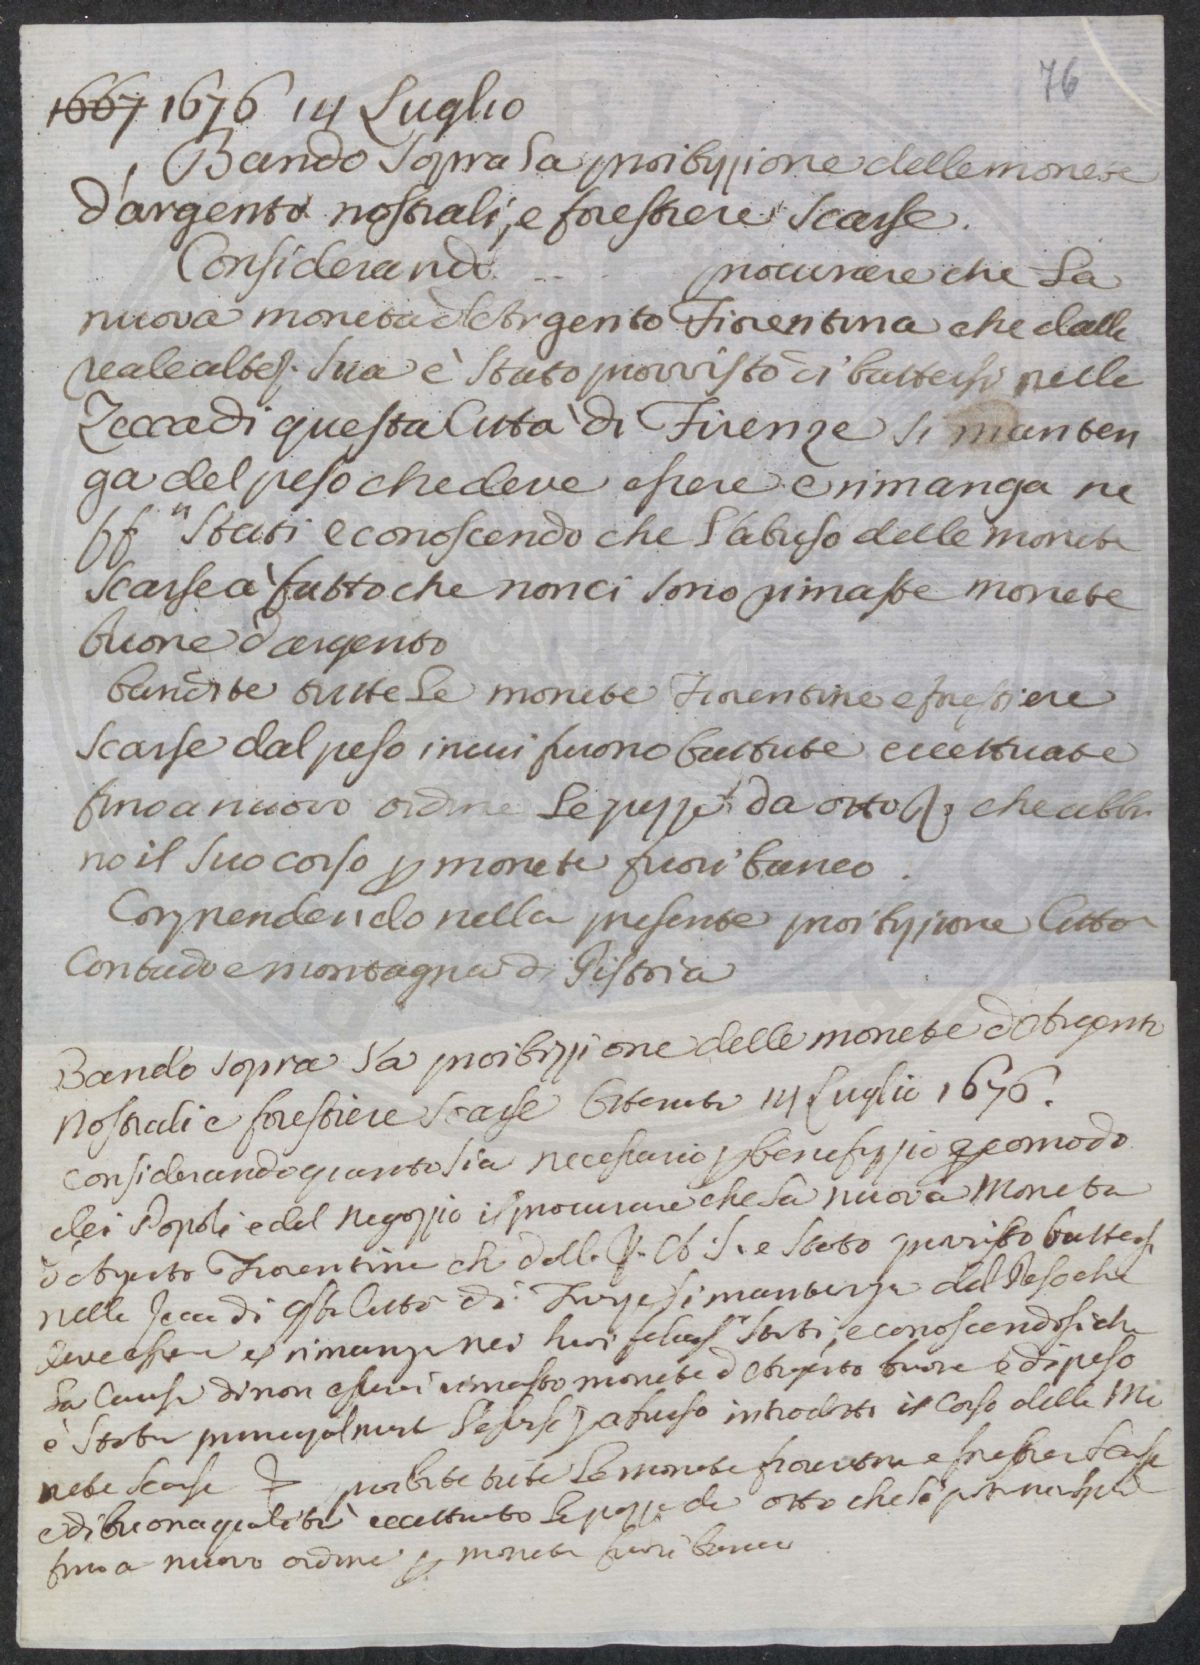 76
1667 1676 14 Luglio
Bando sopra la proibizzione delle monete
d'argento nostrali, e forestiere scarse.
Considerando procurare che la
nuova moneta d'Argento Fiorentina che dalla
reale altez. Sua è stato provvisto di battersi nella
Zecca di questa Citta di Firenze si manten
ga del peso che deve essere e rimanga ne
Stati e conoscendo che l'abuso delle monete
scarse à fatto che non ci sono rimaste monete
buone d'argento
bandite tutte le monete Fiorentine e forestiere
scarse dal peso in cui furono battute eccettuate
fino a nuovo ordine le pezze da otto che abbi
no il suo corso p monete fuori banco.
Comprendendo nella presente proibizzione Citta
Contado e montagna di Pistoia
Bando sopra la proibizzione delle monete d'Argento
Nostrali e forestiere scarse 14 Luglio 1676.
considerando quanto sia necessario p benefizzio e comodo
dei Popoli e del negozzio il procurare che la nuova Moneta
d'Argento Fiorentina ch dalla è stato provvisto battersi
nella Zecca di Citta di Firenze si mantenga del Peso che
deve essere e rimanga nei suoi Stati, e conoscendosi che
la Causa di non esservi rimasto monete d'Argento buone e di peso
è stata principalmente l'essersi p abuso introdotto il Corso delle Mo
nete scarse proibite tutte le monete fiorentine e forestiere scarse
e di buona qualità eccettuato le pezze da otto che si
fino a nuovo ordine p monete fuori banco